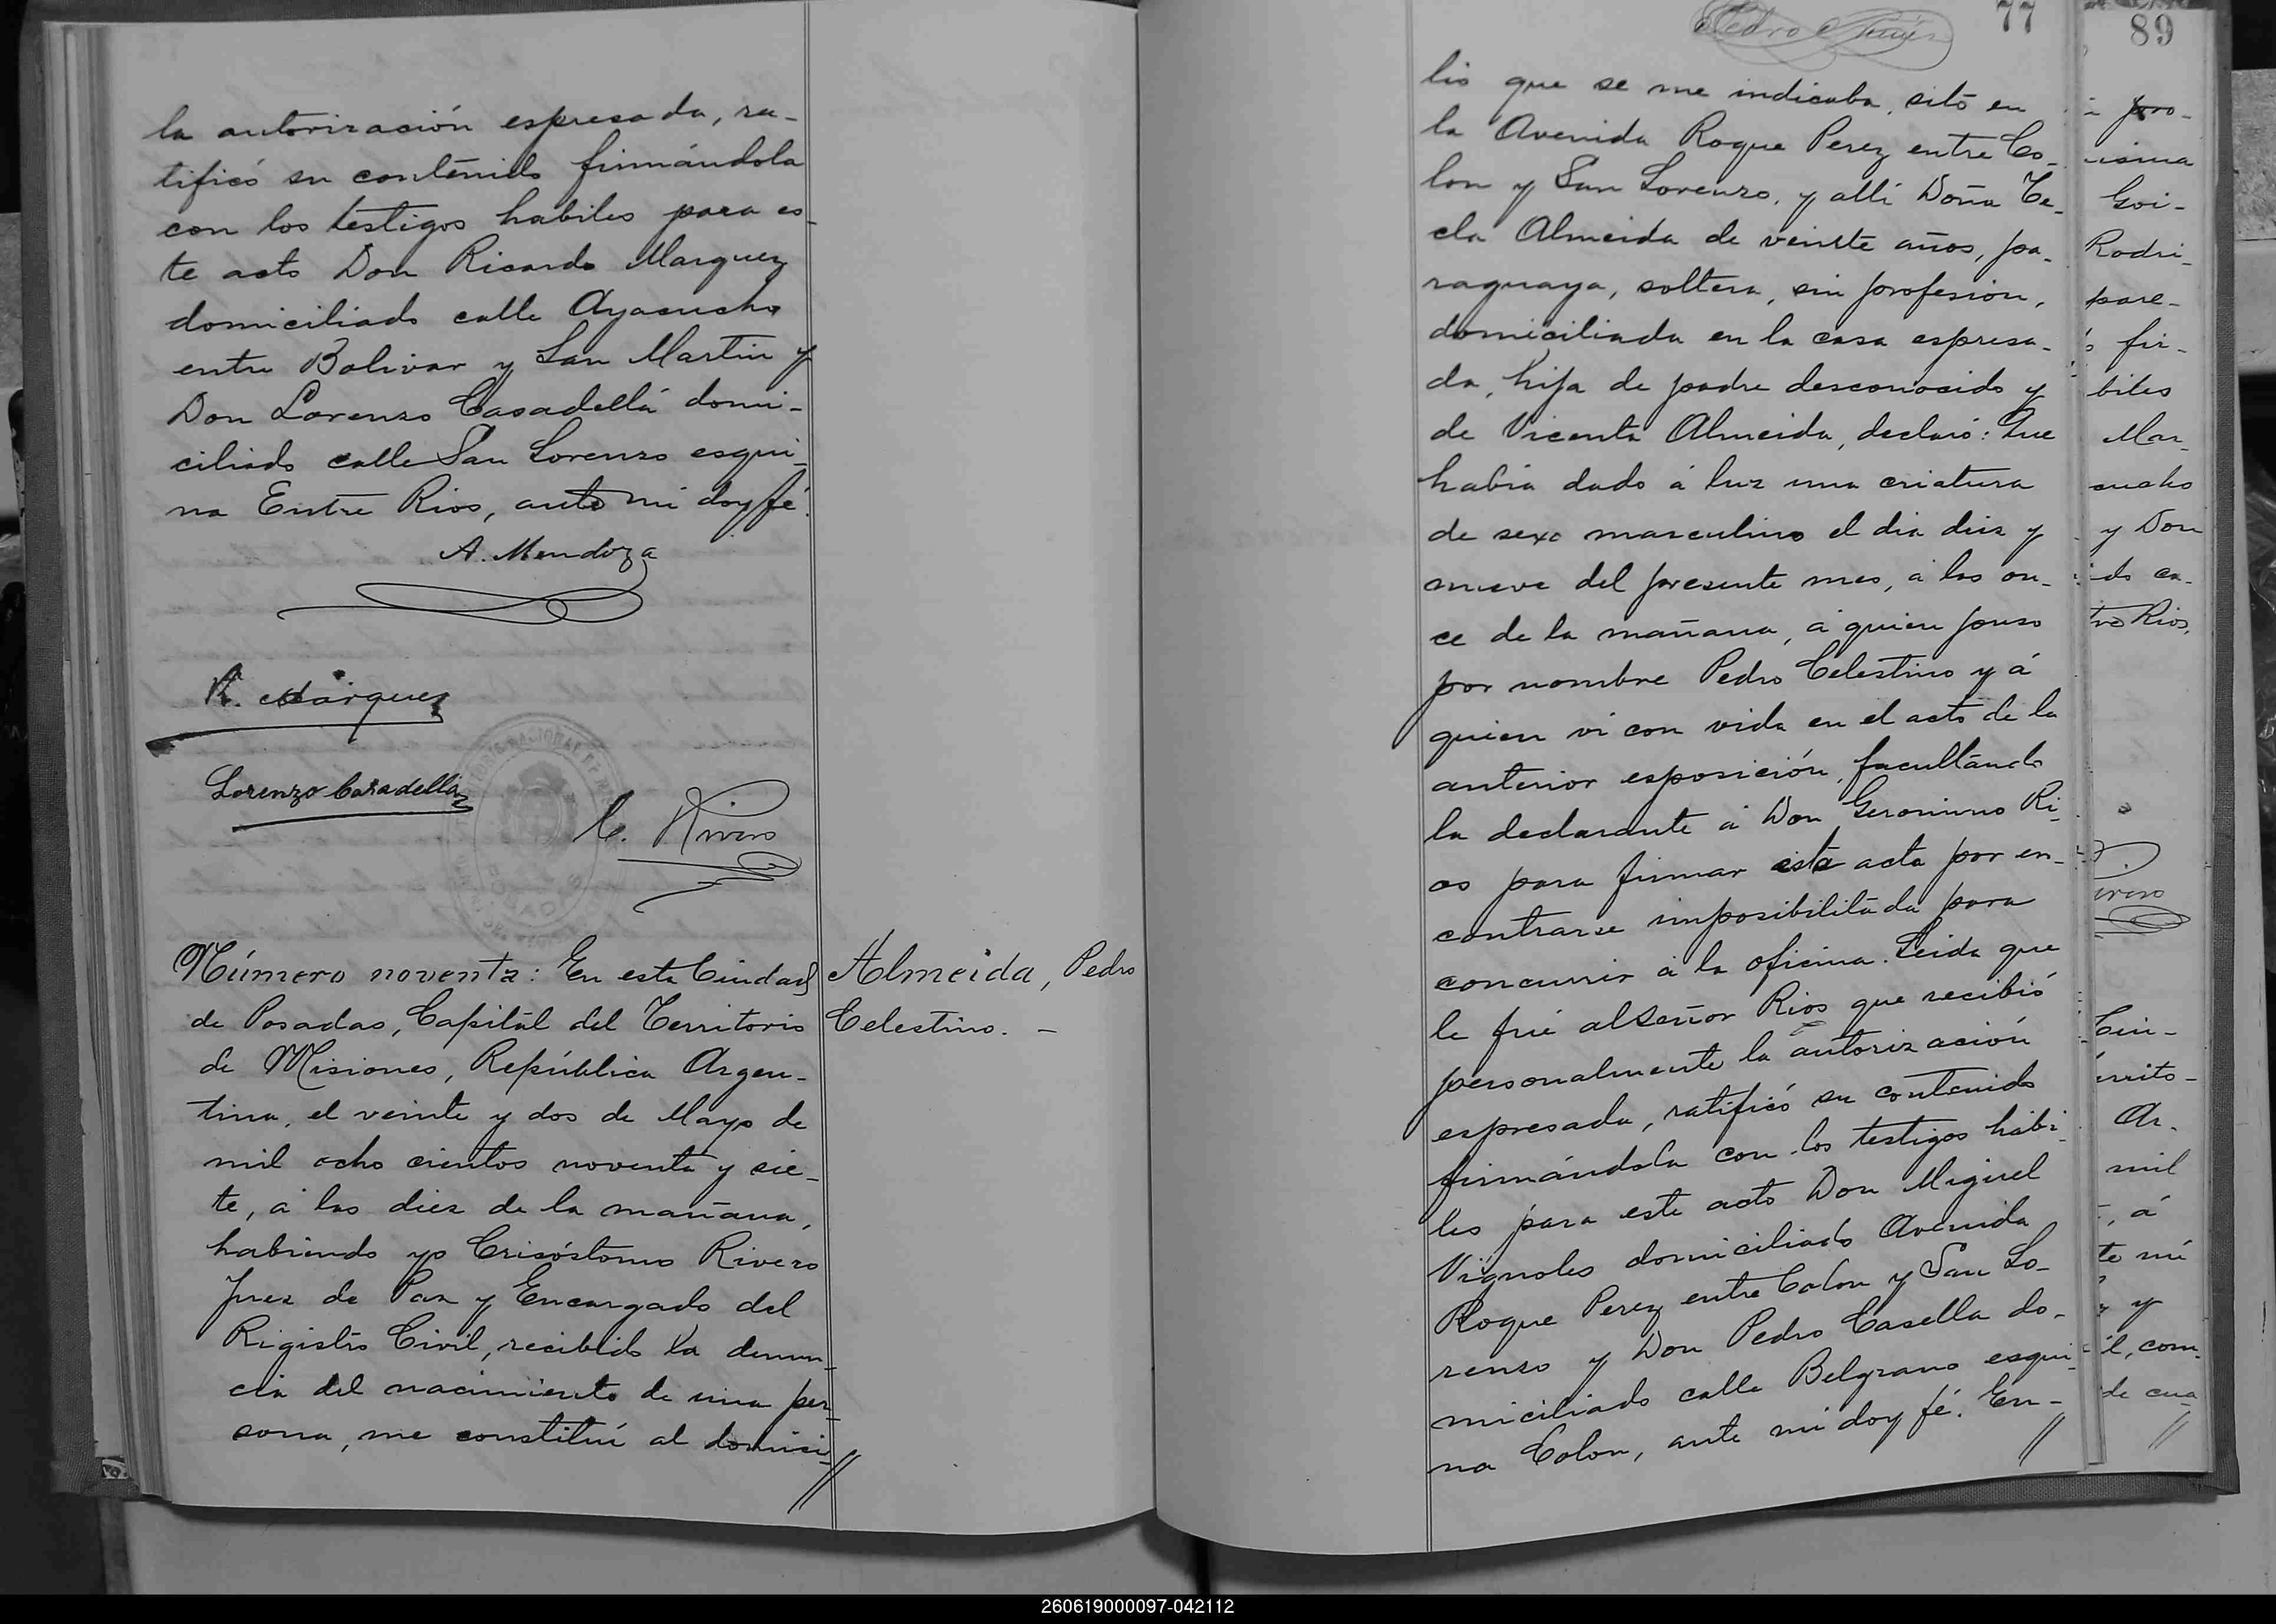 la autorización espresada, ra-
tificó su contenido firmándola
con los testigos habiles para es-
te acto Don Ricardo Marquez
domiciliado calle Ayacucho
entre Bolivar y San Martin y
Don Lorenzo Casadellá domi-
ciliado calle San Lorenzo esqui-
na Entre Rios, ante mi doy fé.
A. Mendoza
R. Márquez
Lorenzo Casadella
C. Rivero
Número noventa: En esta Ciudad
de Posadas, Capital del Territorio
de Misiones, República Argen-
tina, el veinte y dos de Mayo de
mil ocho cientos noventa y sie-
te, á las diez de la mañana,
habiendo yo Crisóstomo Rivero
Juez de Paz y Encargado del
Rigistro Civil, recibido la denun-
cia del nacimiento de una per-
sona, me constituí al domici-
//
Almeida, Pedro
Celestino. -
77
lio que se me indicaba, sito en
la Avenida Roque Perez entre Co-
lon y San Lorenzo, y alli Doña Te-
cla Almeida de veinte años, pa-
raguaya, soltera, sin profesion,
domiciliada en la casa espresa-
da, hija de padre desconocido y
de Vicenta Almeida, declaró: Que
habia dado á luz una criatura
de sexo masculino el dia diez y
nueve del presente mes, á las on-
ce de la mañana, á quien puso
por nombre Pedro Celestino y á
quien vi con vida en el acto de la
anterior esposición, facultando
la declarante á Don Geronimo Ri-
os para firmar esta acta por en-
contrarse imposibilitada para
concurrir á la oficina. Leida que
le fué al Señor Rios que recibió
personalmente la autorización
espresada, ratificó su contenido
firmándola con los testigos habi-
les para este acto Don Miguel
Vignoles domiciliado Avenida
Roque Perez entre Colon y San Lo-
renzo y Don Pedro Casella do-
miciliado calle Belgrano esqui-
na Colon, ante mi doy fé. En-
//
89
pro-
Goi-
Rodri-
pare-
fir-
biles
Mar-
y Don
Rios,
Ar-
mil
, á
te mi
y
, com-
de cua-
//
260619000097-042112